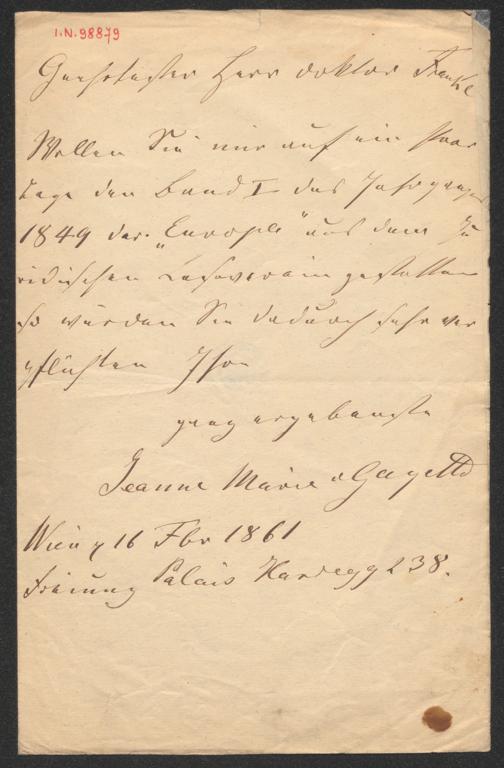 I.N. 98879
Geehrtester Herr Doktor Frankl
Wollen Sie mir auf ein Paar
Tage den Band I des Jahrganges
1849 der „Europa" aus dem Ju
ridischen Leseverein gestatten
so würden Sie dadurch sehr ver
pflichten Ihre
ganz ergebenste
Jeanne Marie v Gayette
Wien 16 Fbr 1861
Freiung Palais Hardegg 238.